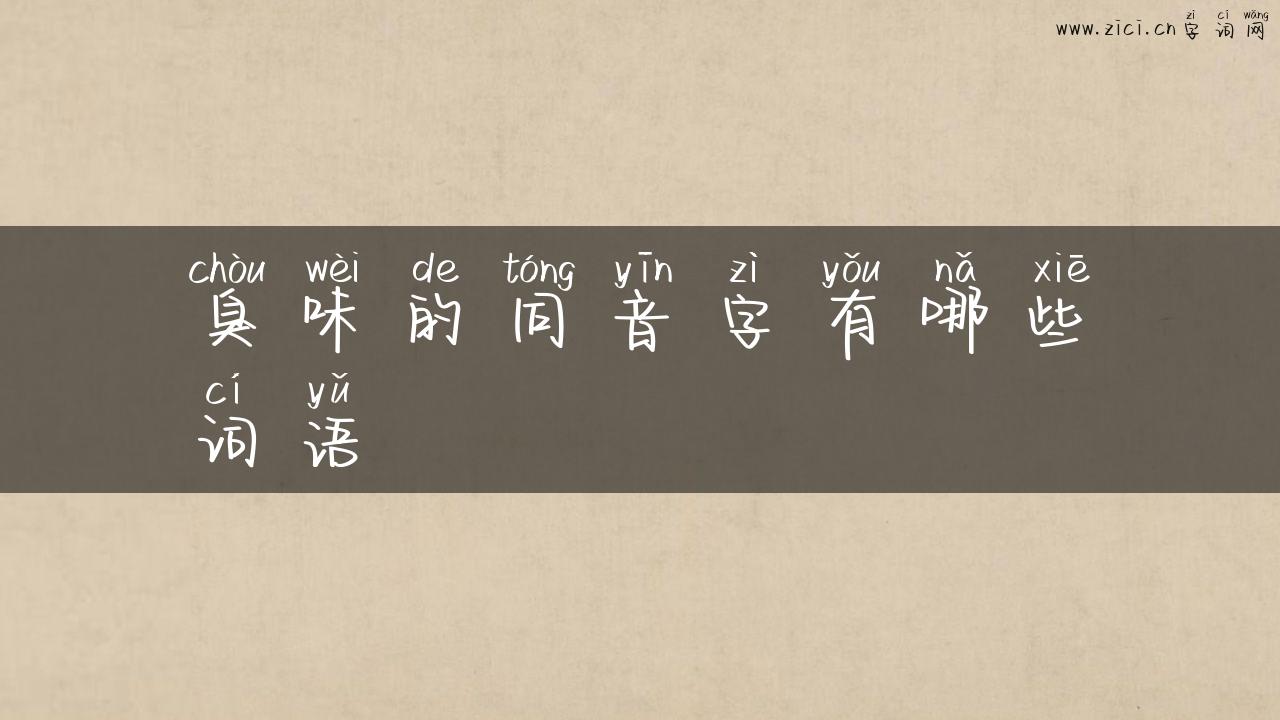 zì cí wǎng
www.zici.cn字词网
chòu wèi de tóng yīn zì yǒu nǎ xiē
臭味的同音字有哪些
cí yǔ
词语